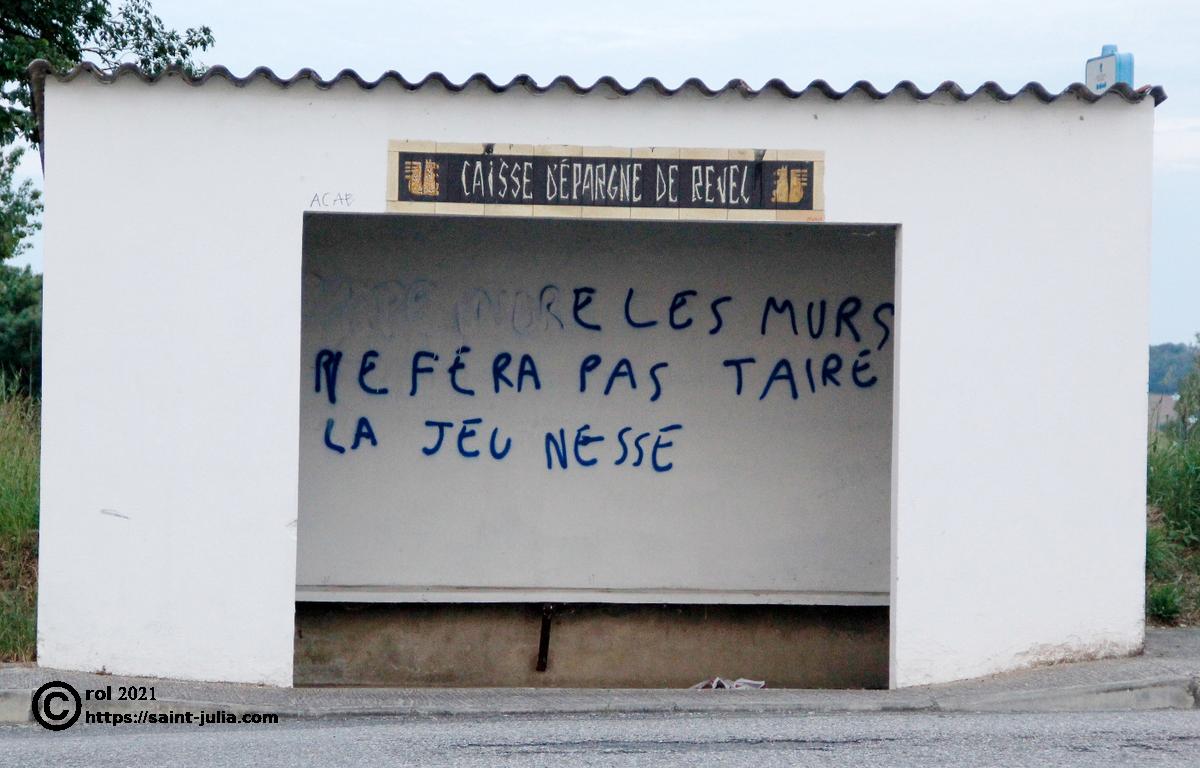 CAISSE D'ÉPARGNE DE REVEL
ACAB
E LES MURS
NE FERA PAS TAIRE
LA JEU NESSE
© rol 2021
https://saint-julia.com